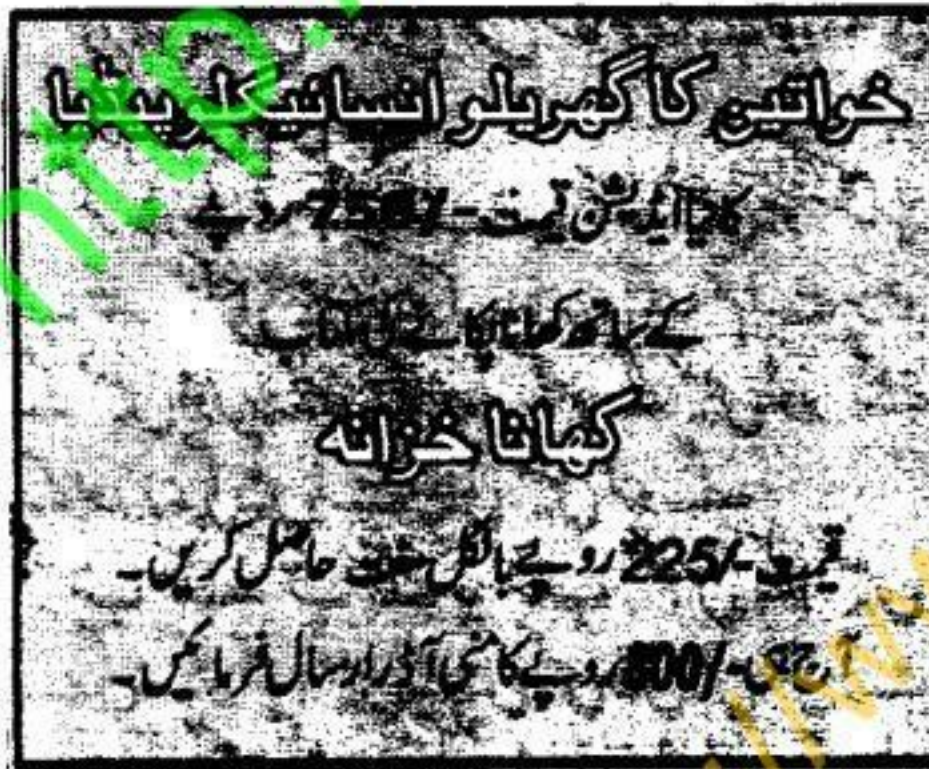 خواتین کا گھریلو انسائیکلوپیڈیا
کا نیا ایڈیشن قیمت -/750 روپے
کے ساتھ کھانا پکانے کی کتاب
کھانا خزانہ
قیمت -/225 روپے بالکل مفت حاصل کریں۔
آج ہی -/800 روپے کا منی آڈر ارسال فرمائیں۔
http:
//w